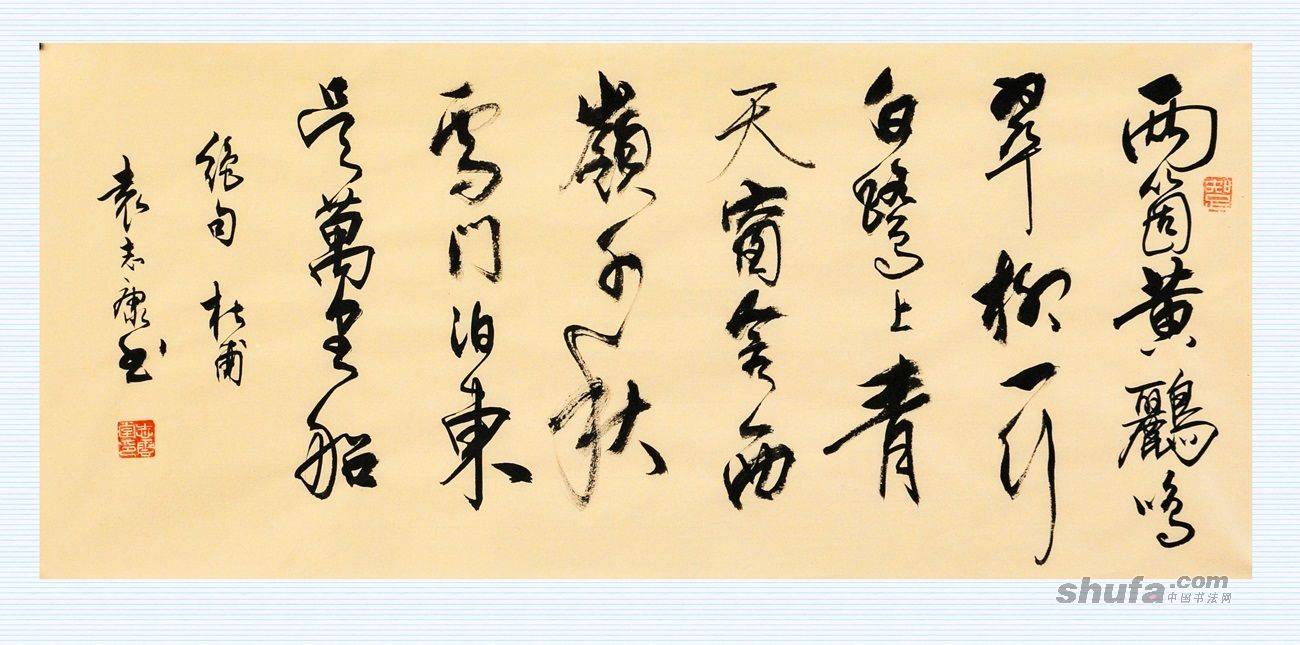 兩箇黃鸝鳴
翠柳一行
白鷺上青
天窗含西
嶺千秋
雪門泊東
吳萬里船
絶句 杜甫
袁志康书
shufa.com
中国书法网